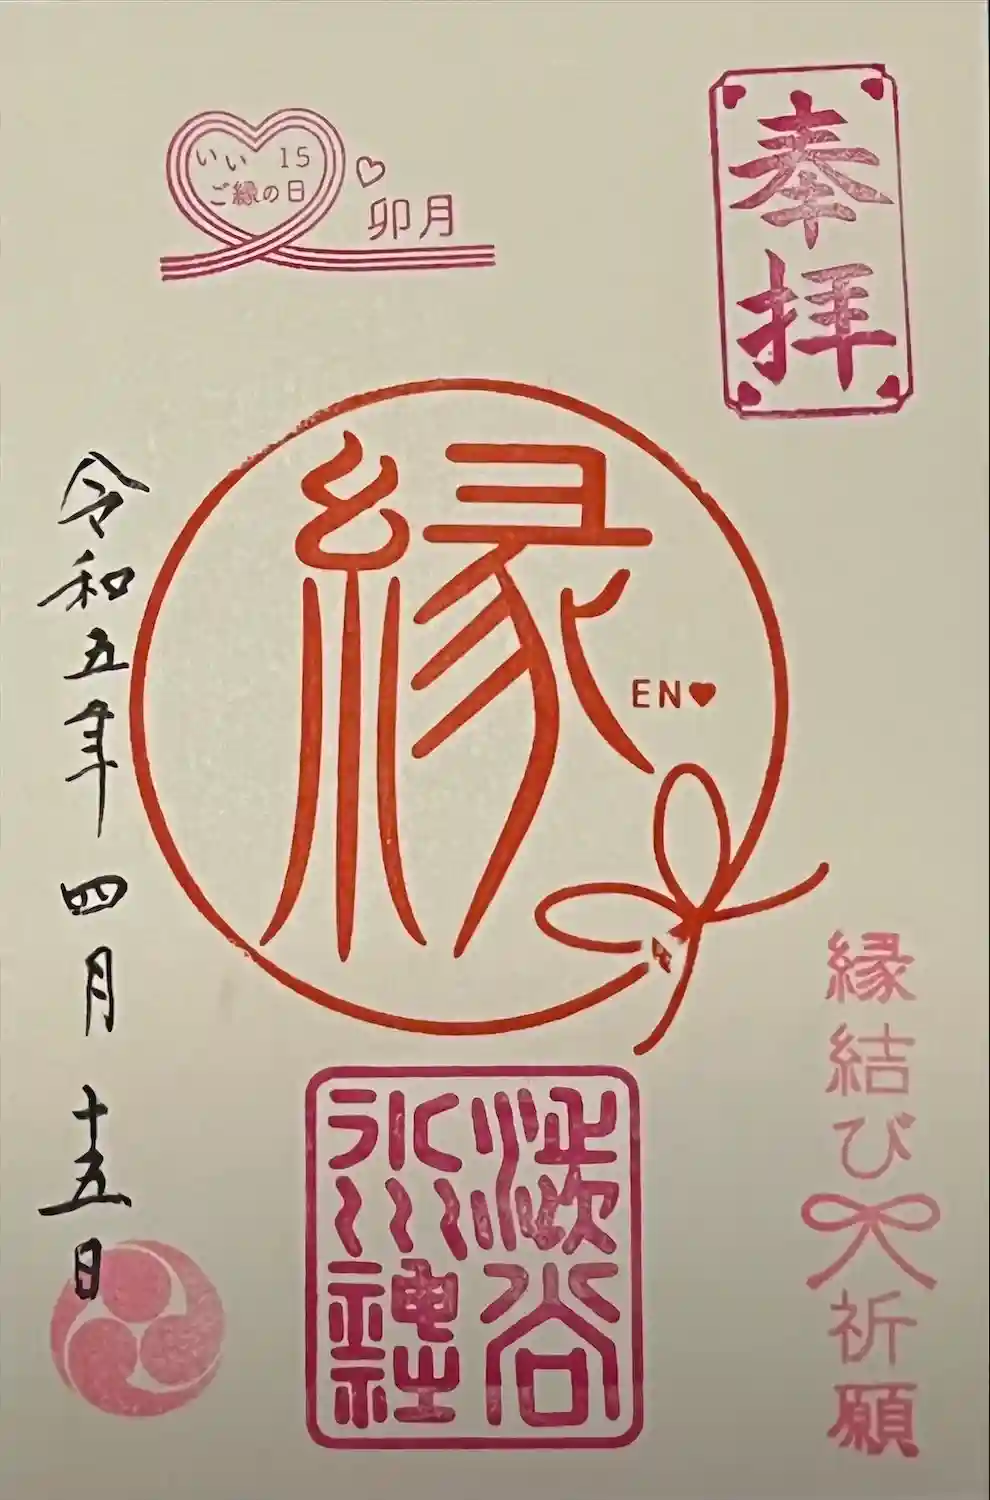 奉拝
いい 15
ご縁の日
卯月
縁
EN♥
縁結び
祈願
渋谷
氷川
神社
令和五年 四月 十五日